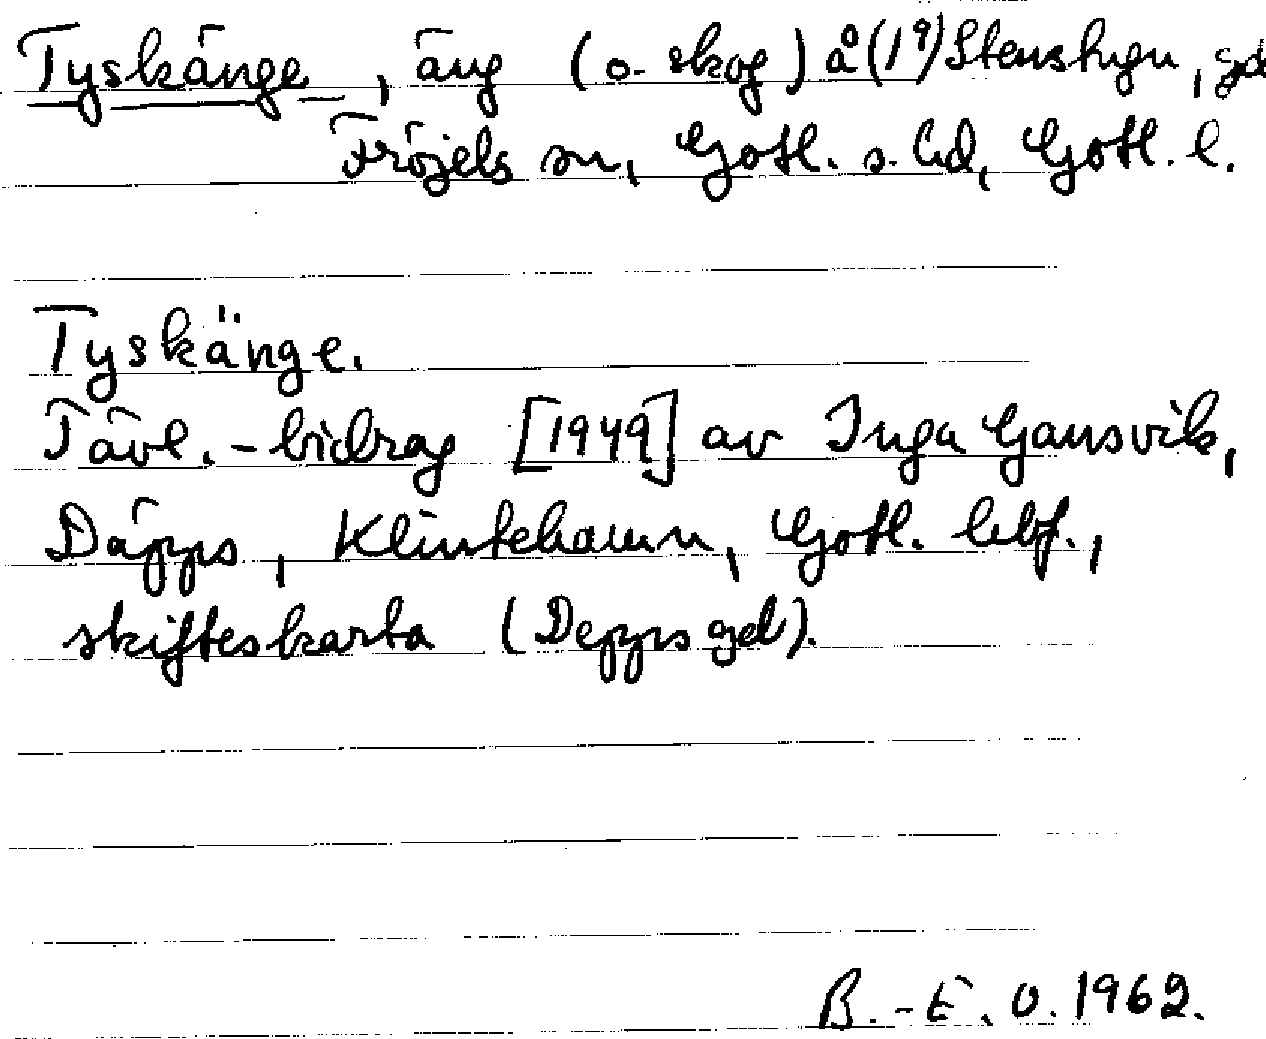 Tyskänge, äng (o. skog) å (1⁹) Stenstugu, gd
Fröjels sn, Gotl. s. hd, Gotl. l.
Tyskänge.
Tävl.-bidrag [1949] av Inga Gansvik,
Däpps, Klintehamn, Gotl. hbf.,
skifteskarta (Depps gd).
B.-E. O. 1962.